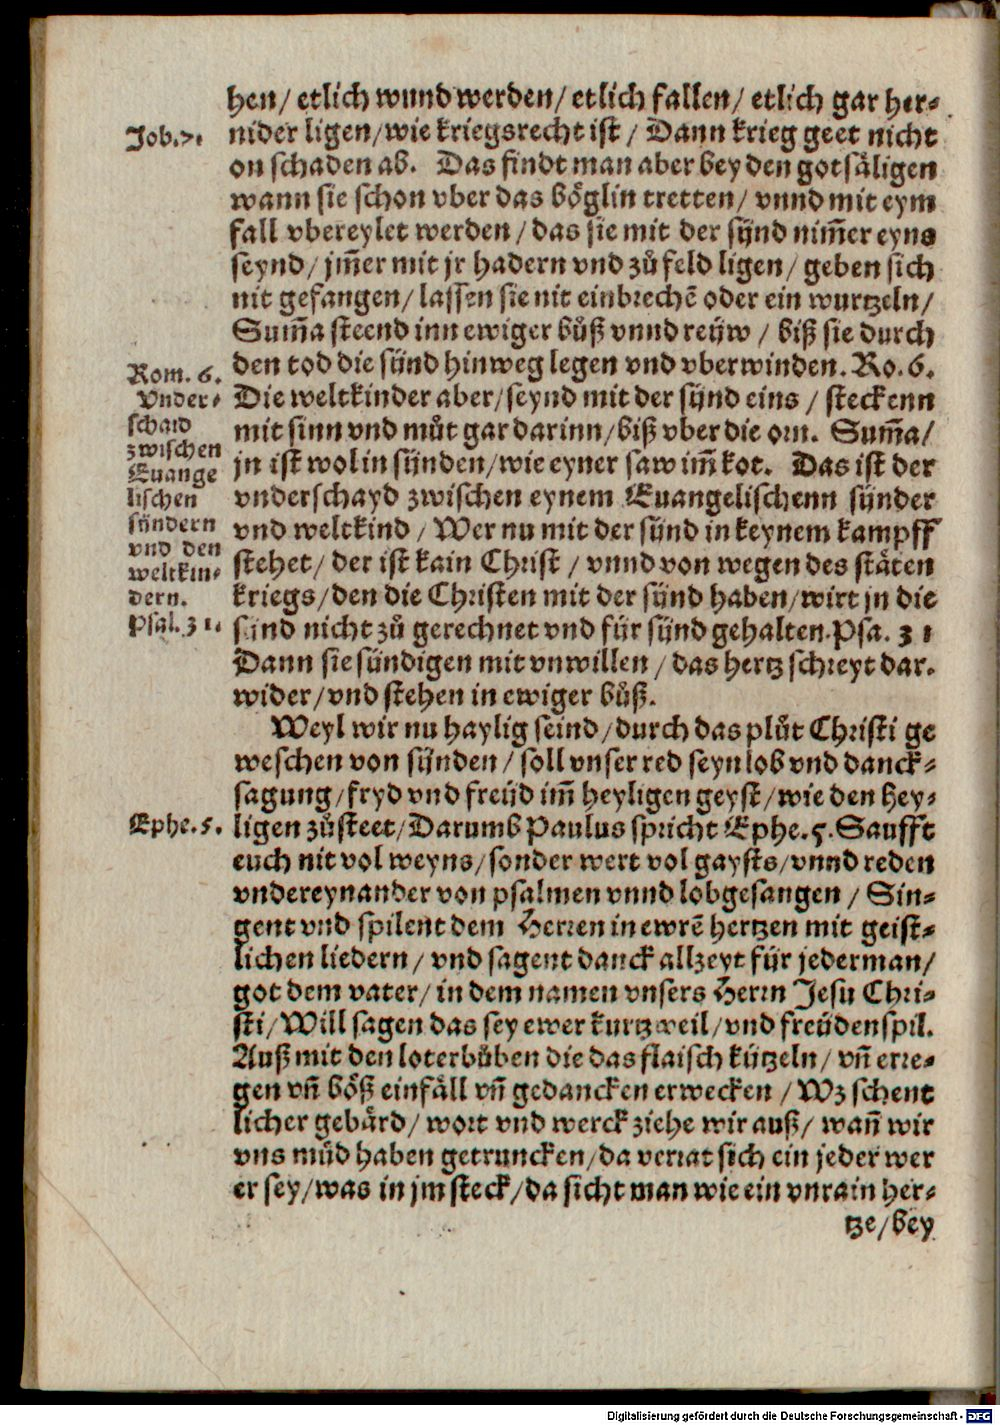 hen/ etlich wund werden/ etlich fallen/ etlich gar her⸗
Job.7.
nider ligen/wie kriegsrecht ist / Dann krieg geet nicht
on schaden ab. Das findt man aber bey den gotsäligen
wann sie schon vber das böglin tretten/ vnnd mit eym
fall vbereylet werden/ das sie mit der sünd nim̃er eyns
seynd/ jm̃er mit jr hadern vnd zů feld ligen/ geben sich
nit gefangen/ lassen sie nit einbrechē oder ein wurtzeln/
Sum̃a steend inn ewiger bůß vnnd reüw / biß sie durch
den tod die sünd hinweg legen vnd vberwinden. Ro. 6.
Rom. 6.
Vnder⸗
schaid
zwischen
Euange
lischen
sündern
vnd den
weltkin⸗
dern.
Psal.31.
Die weltkinder aber/seynd mit der sünd eins / steckenn
mit sinn vnd můt gar darinn/biß vber die orn. Sum̃a/
jn ist wol in sünden/wie eyner saw im̃ kot. Das ist der
vnderschayd zwischen eynem Euangelischenn sünder
vnd weltkind / Wer nu mit der sünd in keynem kampff
stehet/ der ist kain Christ / vnnd von wegen des stäten
kriegs/den die Christen mit der sünd haben/wirt jn die
sünd nicht zů gerechnet vnd für sünd gehalten.Psa. 31
Dann sie sündigen mit vnwillen / das hertz schreyt dar⸗
wider/vnd stehen in ewiger bůß.
Weyl wir nu haylig seind/durch das plůt Christi ge
weschen von sünden / soll vnser red seyn lob vnd danck⸗
sagung/fryd vnd freüd im̃ heyligen geyst/wie den Hey⸗
Ephe.5.
ligen zůsteet/Darumb Paulus spricht Ephe.5. Saufft
euch nit vol weyns/sonder wert vol gaysts/vnnd reden
vndereynander von psalmen vnnd lobgesangen / Sin⸗
gent vnd spilent dem Herren in ewrē hertzen mit geist⸗
lichen liedern/ vnd sagent danck allzeyt für jederman/
got dem vater/ in dem namen vnsers Herrn Jesu Chri⸗
sti/Will sagen das sey ewer kurtzweil/vnd freüdenspil.
Auß mit den loterbůben die das flaisch kützeln/ vñ erre⸗
gen vñ böß einfäll vñ gedancken erwecken / Wz schent
licher gebärd/ wort vnd werck ziehe wir auß/ wañ wir
vns müd haben getruncken/da verrat sich ein jeder wer
er sey/was in jm steck/da sicht man wie ein vnrain her⸗
tze/bey
Digitalisierung gefördert durch die Deutsche Forschungsgemeinschaft - DFG